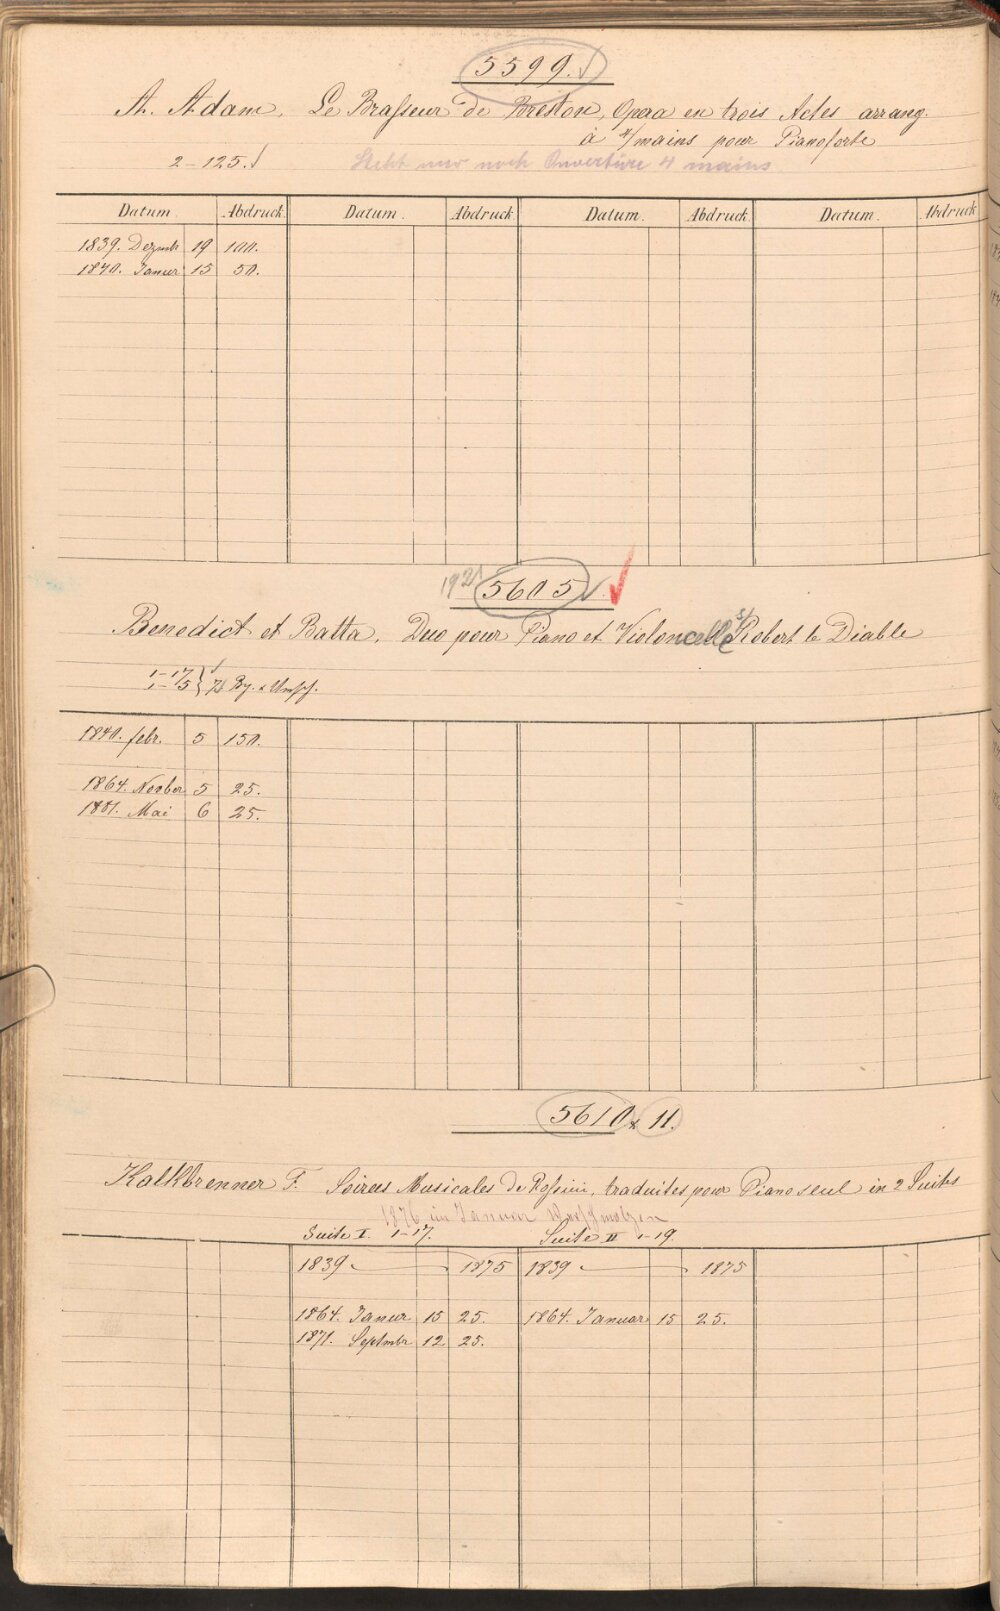 5599.
A. Adam, Le Brasseur de Breston, Opera en trois Actes arrang.
à 4/mains pour Pianoforte
2-125. Steht nur noch Ouverture 4 mains
Datum. Abdruck. Datum. Abdruck Datum. Abdruck Datum. Abdruck
1839. Dezmb 19 100.
1840. Januer 15 50.
1921 5605
Benedict et Batta, Duo pour Piano et Violoncelle s/ Robert le Diable
1-17
1-5
1840. febr. 5 150.
1864. Novber 5 25.
1881. Mai 6 25.
5610 & 11.
Kalkbrenner F. Soirées Musicales de Rossini, traduites pour Piano seul in 2 Suites
1876 im Januar
Suite I. 1-17. Suite II 1-19.
1839 1875 1839 1875
1864. Januer 15 25. 1864. Januar 15 25.
1871. Septmbr 12 25.